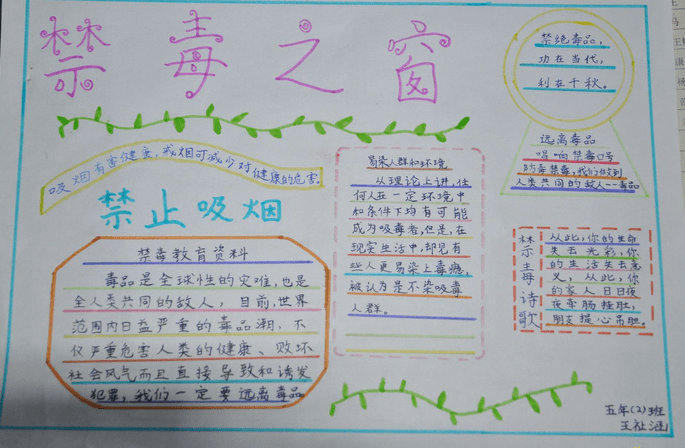 禁毒之窗
吸烟有害健康,戒烟可减少对健康的危害.
禁止吸烟
禁毒教育资料
毒品是全球性的灾难,也是
全人类共同的敌人,目前,世界
范围内日益严重的毒品潮,不
仅严重危害人类的健康、败坏
社会风气而且直接导致和诱发
犯罪,我们一定要远离毒品
易染人群和环境
从理论上讲,任
何人在一定环境中
和条件下均有可能
成为吸毒者,但是,在
现实生活中,却见有
些人更易染上毒瘾,
被认为是不染吸毒
人群。
禁绝毒品,
功在当代,
利在千秋。
远离毒品
唱响禁毒口号
防毒禁毒,我们做到
人类共同的敌人——毒品
禁毒诗歌
从此,你的生命
失去光彩,你
的生活失去意
义,从此,你
的家人日日夜
夜牵肠挂肚,
朋友提心吊胆。
五年(2)班
王祉涵